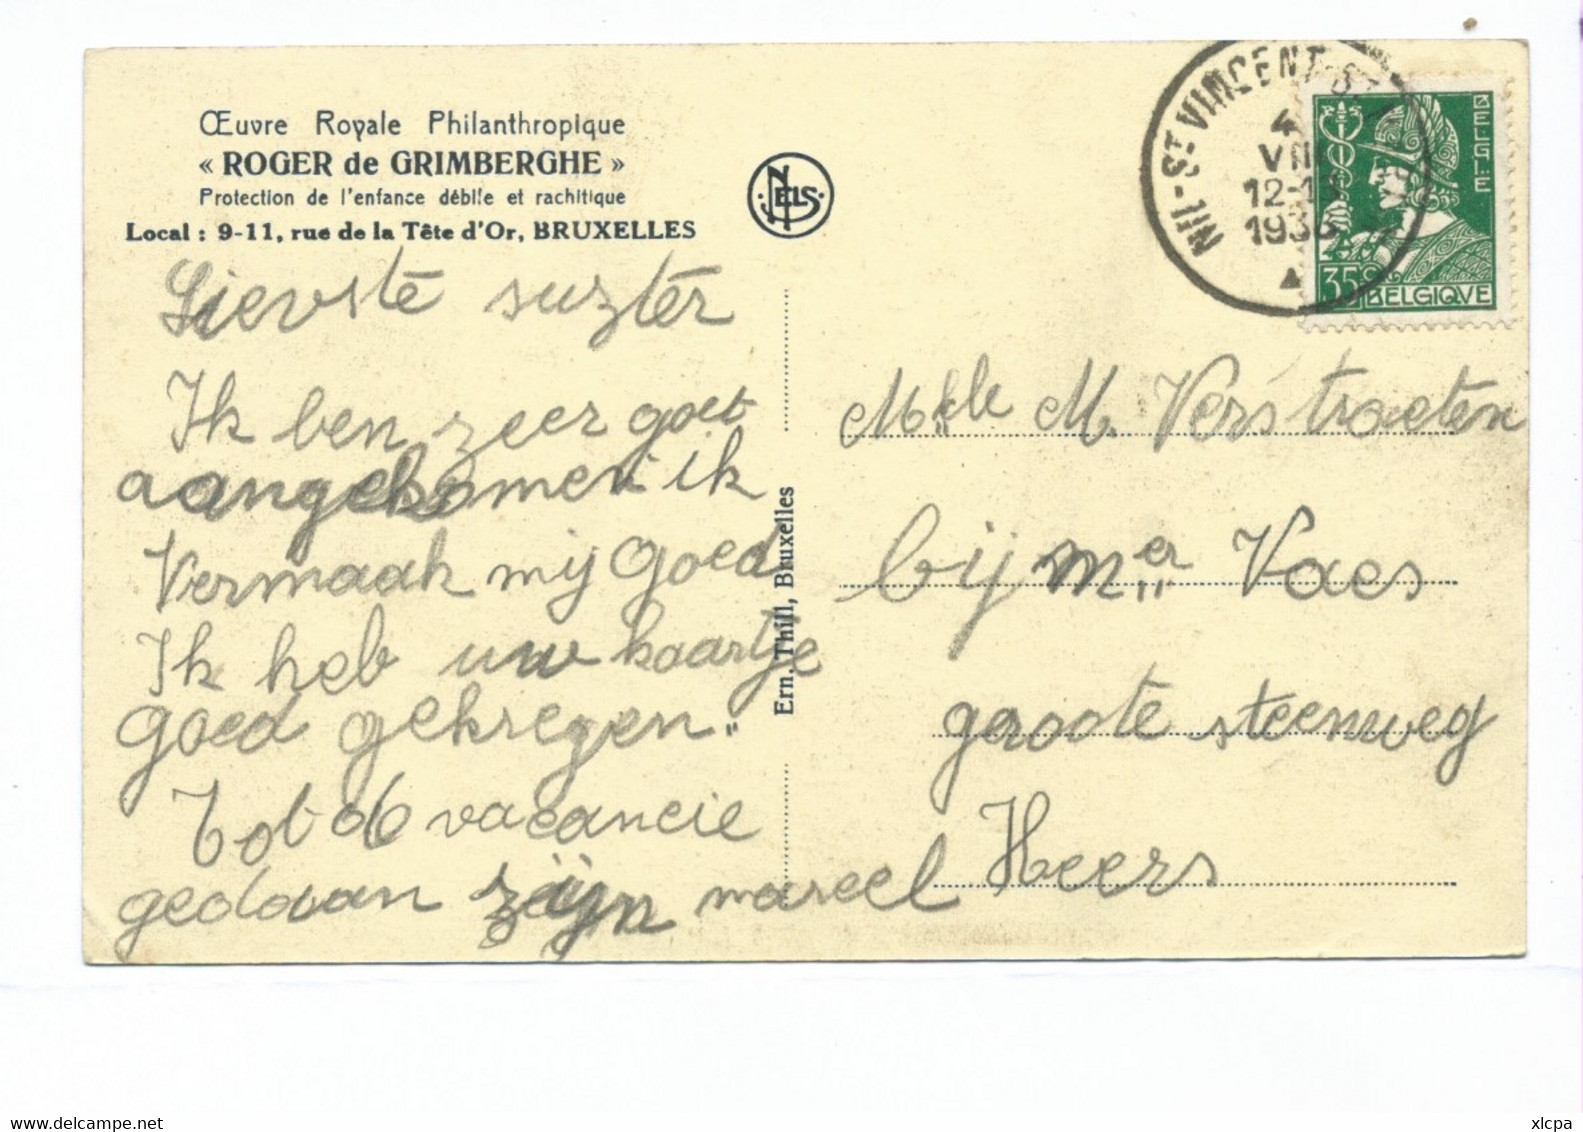 Œuvre Royale Philanthropique
« ROGER de GRIMBERGHE »
Protection de l'enfance débile et rachitique
Local : 9-11, rue de la Tête d'Or, BRUXELLES
NELS
NIL-ST-VINCENT-ST
4
VII
12-1
193
BELGIË
35c
BELGIQVE
Lievste suzter
Ik ben zeer goet
aangekomen ik
Vermaak mij goed
Ik heb uw kaartje
goed gekregen.
Tot de vacancie
gedaan zijn marcel
Ern. Thill, Bruxelles
Melle M. Verstraeten
bij mer Vaes
groote steenweg
Heers
xlcpa
www.delcampe.net